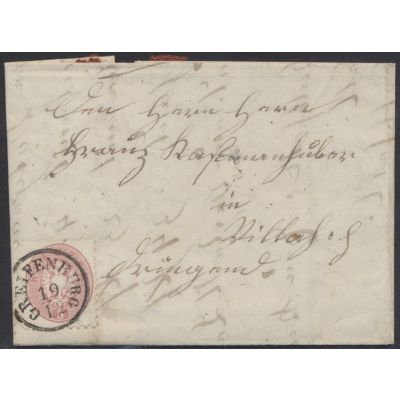 Den Herrn Herrn
Franz Kastmanhuber
in
Villach
dringend
GREIFENBURG
19
12